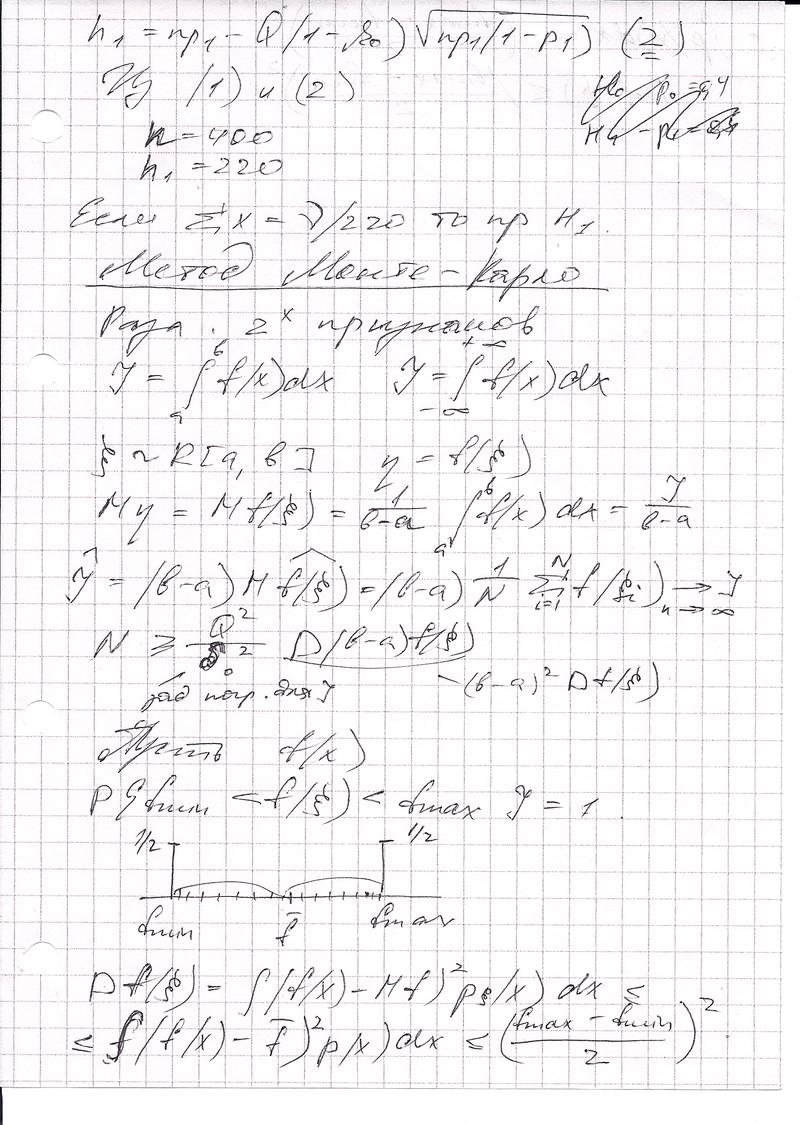 h₁ = np₁ - Q(1-β₀)√(np₁(1-p₁)) (2)
Из (1) и (2)
n = 400
h₁ = 220
Если Σx = ν > 220 то пр H₁.
Метод Монте-Карло
признаков
J = ∫ₐᵇ f(x)dx J = ∫₋∞⁺∞ f(x)dx
ξ ~ R[a, b] η = f(ξ)
Mη = Mf(ξ) = 1/(b-a) ∫ₐᵇ f(x)dx = J/(b-a)
Ĵ = (b-a) M̂f(ξ) = (b-a) 1/N Σᵢ₌₁ᴺ f(ξᵢ) →ₙ→∞ J
N ≥ Q²/ε₀² D(b-a)f(ξ)
зад погр. для J - (b-a)² Df(ξ)
Пусть f(x)
P{fmin < f(ξ) < fmax} = 1.
1/2 1/2
fmin f̄ fmax
Df(ξ) = ∫(f(x) - Mf)² pξ(x) dx ≤
≤ ∫(f(x) - f̄)² p(x)dx ≤ ((fmax - fmin)/2)²